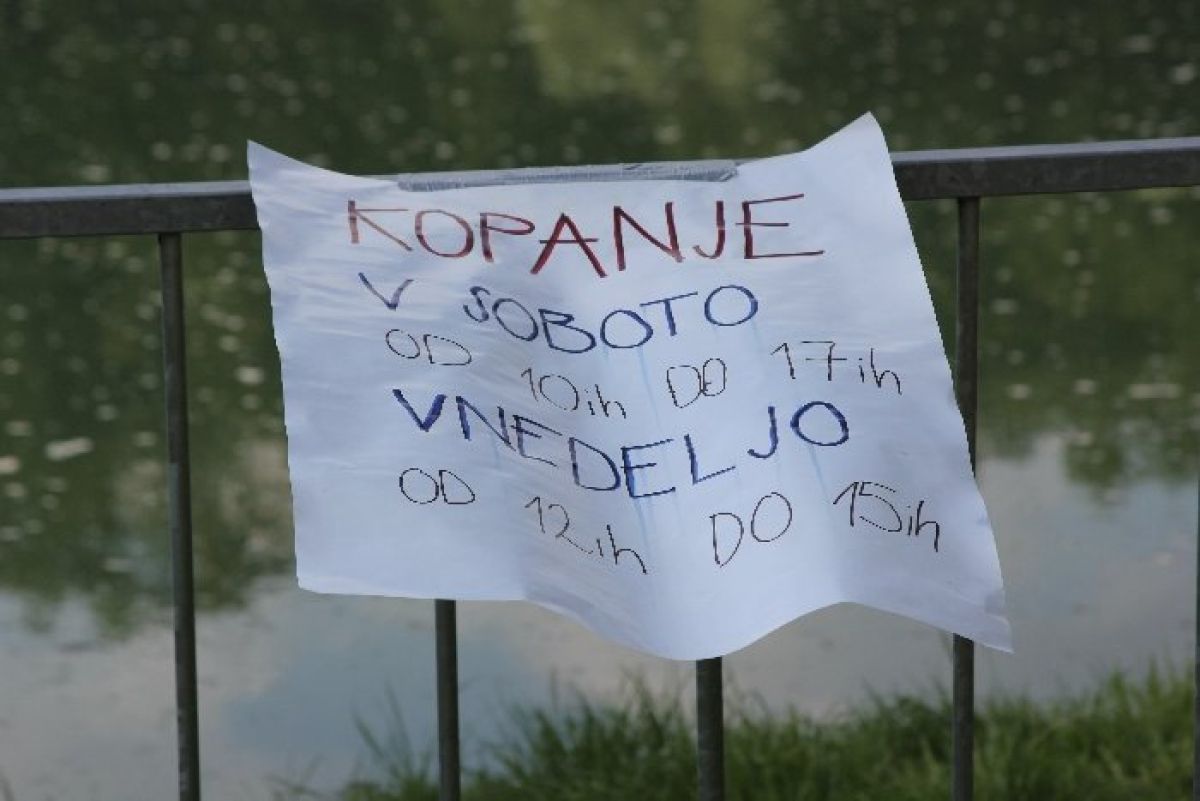 KOPANJE
V SOBOTO
OD 10ih DO 17ih
V NEDELJO
OD 12ih DO 15ih